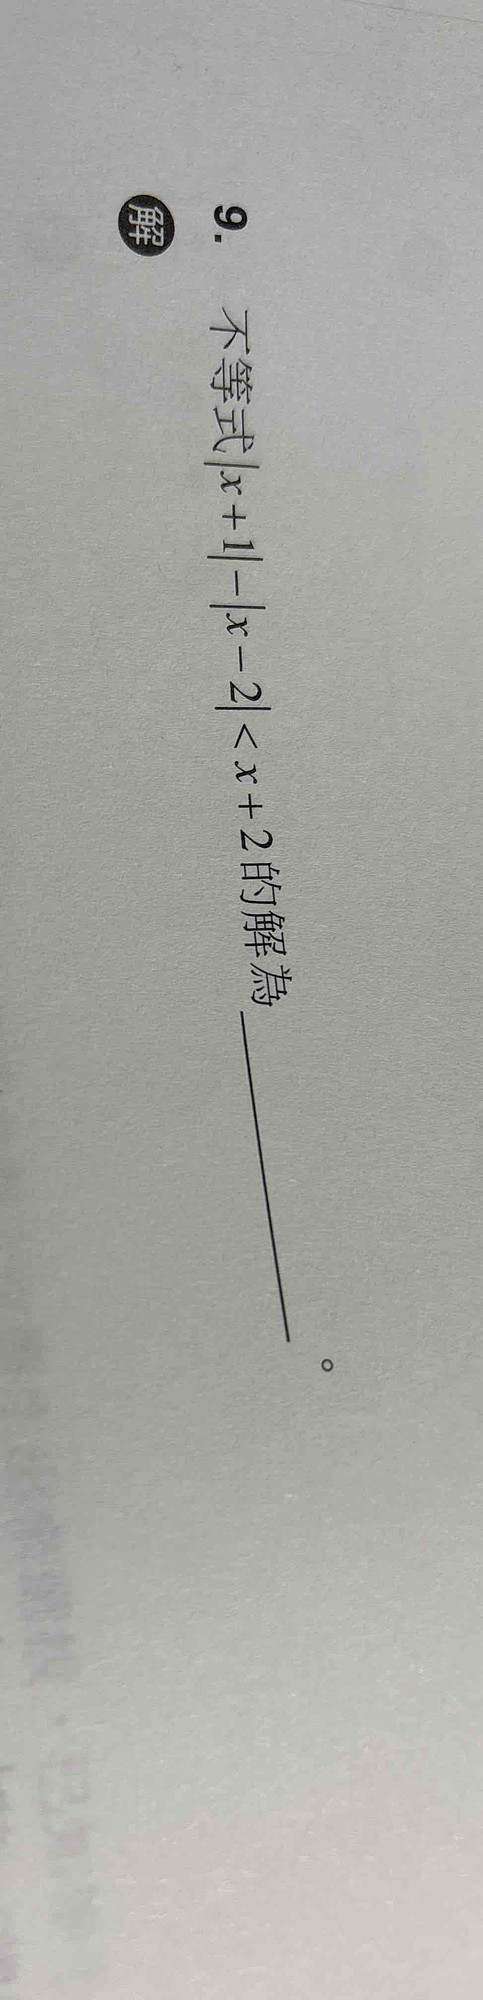 9. 不等式|x+1|−|x−2|<x+2的解為＿＿＿＿＿。
解